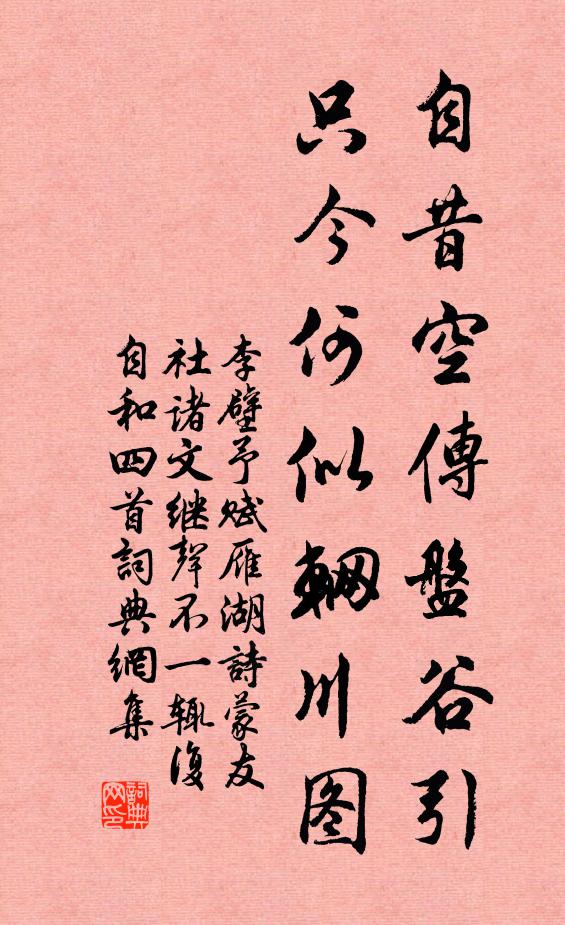 自昔空傳盤谷引
只今何似輞川图
李壁予赋雁湖詩蒙友
社诸文继聲不一輒復
自和四首詞典網集
詞典网印